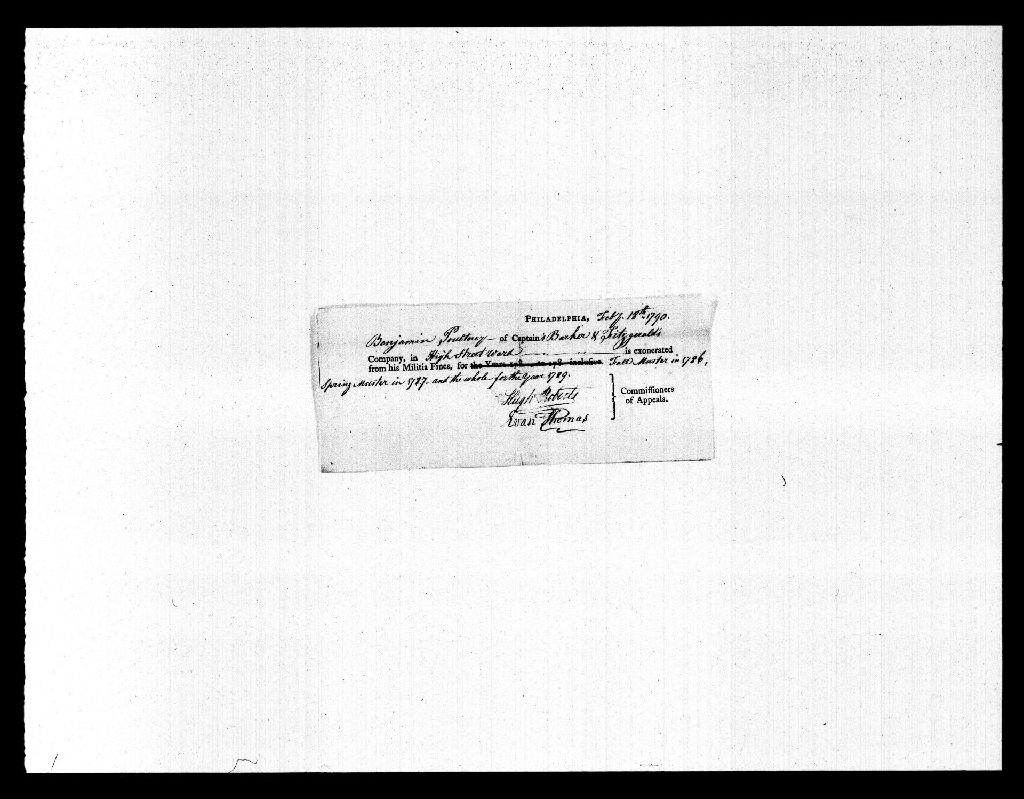 PHILADELPHIA, Feby. 18th. 1790.
Benjamin Poultney - of Captain's Barker & Fitzgerald's
Company, in High Street Ward is exonerated
from his Militia Fines, for the Years 178 to 178 inclusive Fall Muster in 1786,
Spring Muster in 1787. and the whole for the Year 1789.
Hugh Roberts
Evan Thomas
Commissioners
of Appeals.